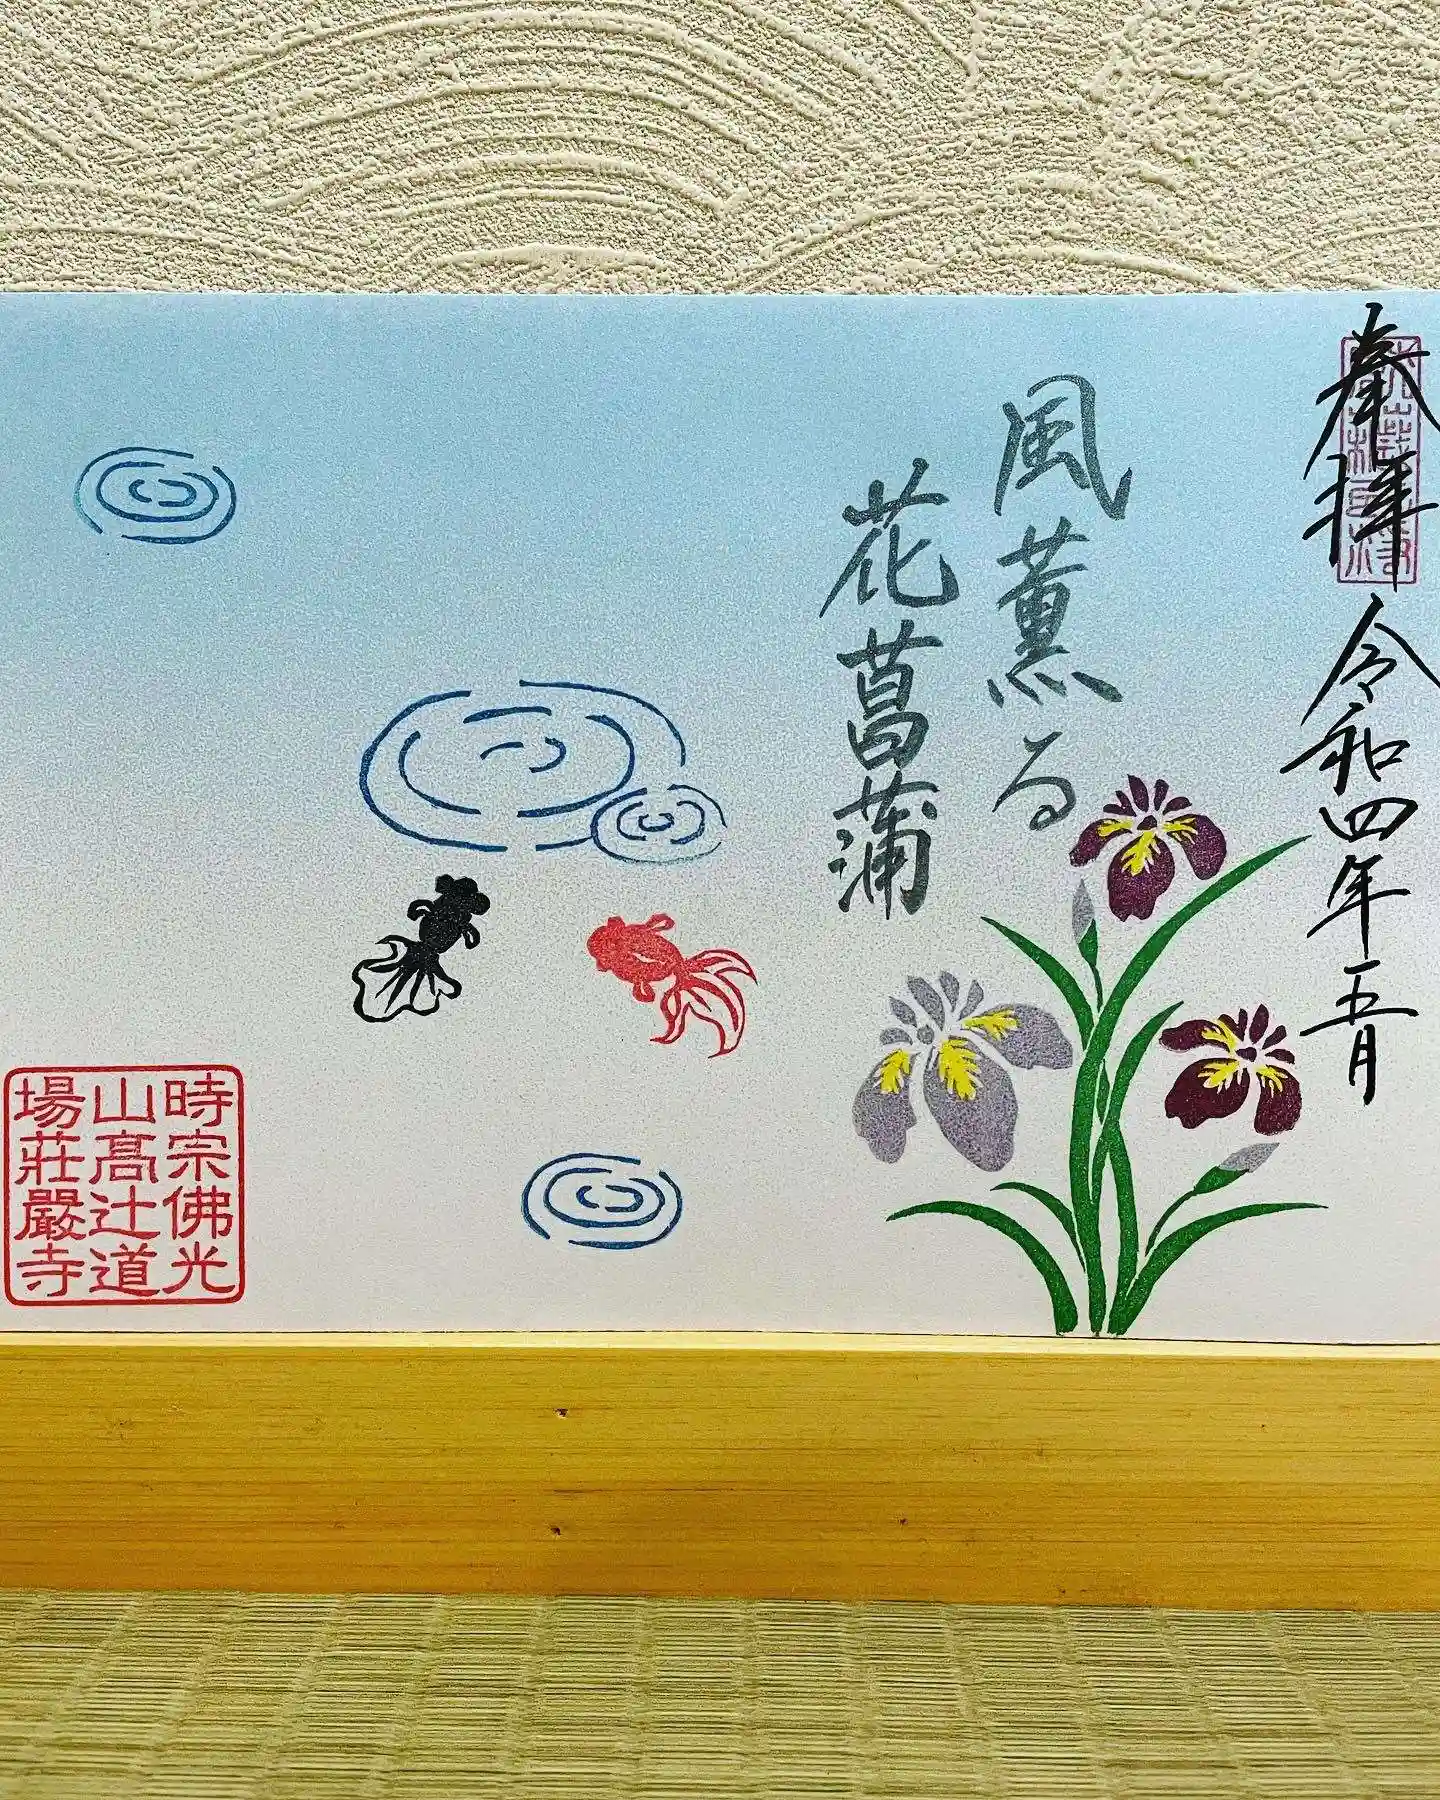 奉拝
令和四年五月
風薫る
花菖蒲
時宗佛光
山高辻道
場莊嚴寺